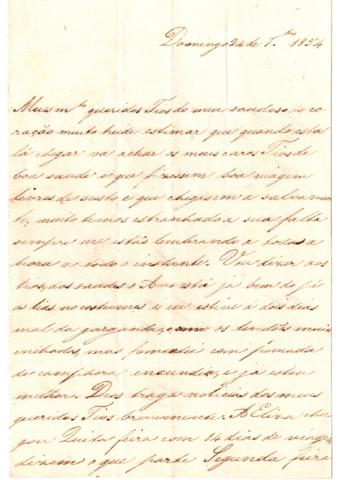 Domingo 24 de 7.bro 1854
Meus m.to queridos Tios do meu saudoso co
ração muito heide estimar que quando esta
lá chegar va achar os meus caros Tios de
boa saude e que fizessem boa viagem
livres de susto e que chegassem a salvamen
to, muito temos estranhado a sua falta
sempre me estão lembrando a todas a
hora a todo o instante. Vou dizer aos
tios, das saudes o Avo está já bom do pé
as tias no costume e eu estive á dois dias
mal da garganta, com os
inchados, mas com pomada
de campora e já estou
melhor. Deos traga noticias dos meus
queridos Tios brevemente. A Eliza che
gou Quita feira com 14 dias de viagem
dizem o que parte Segunda feira